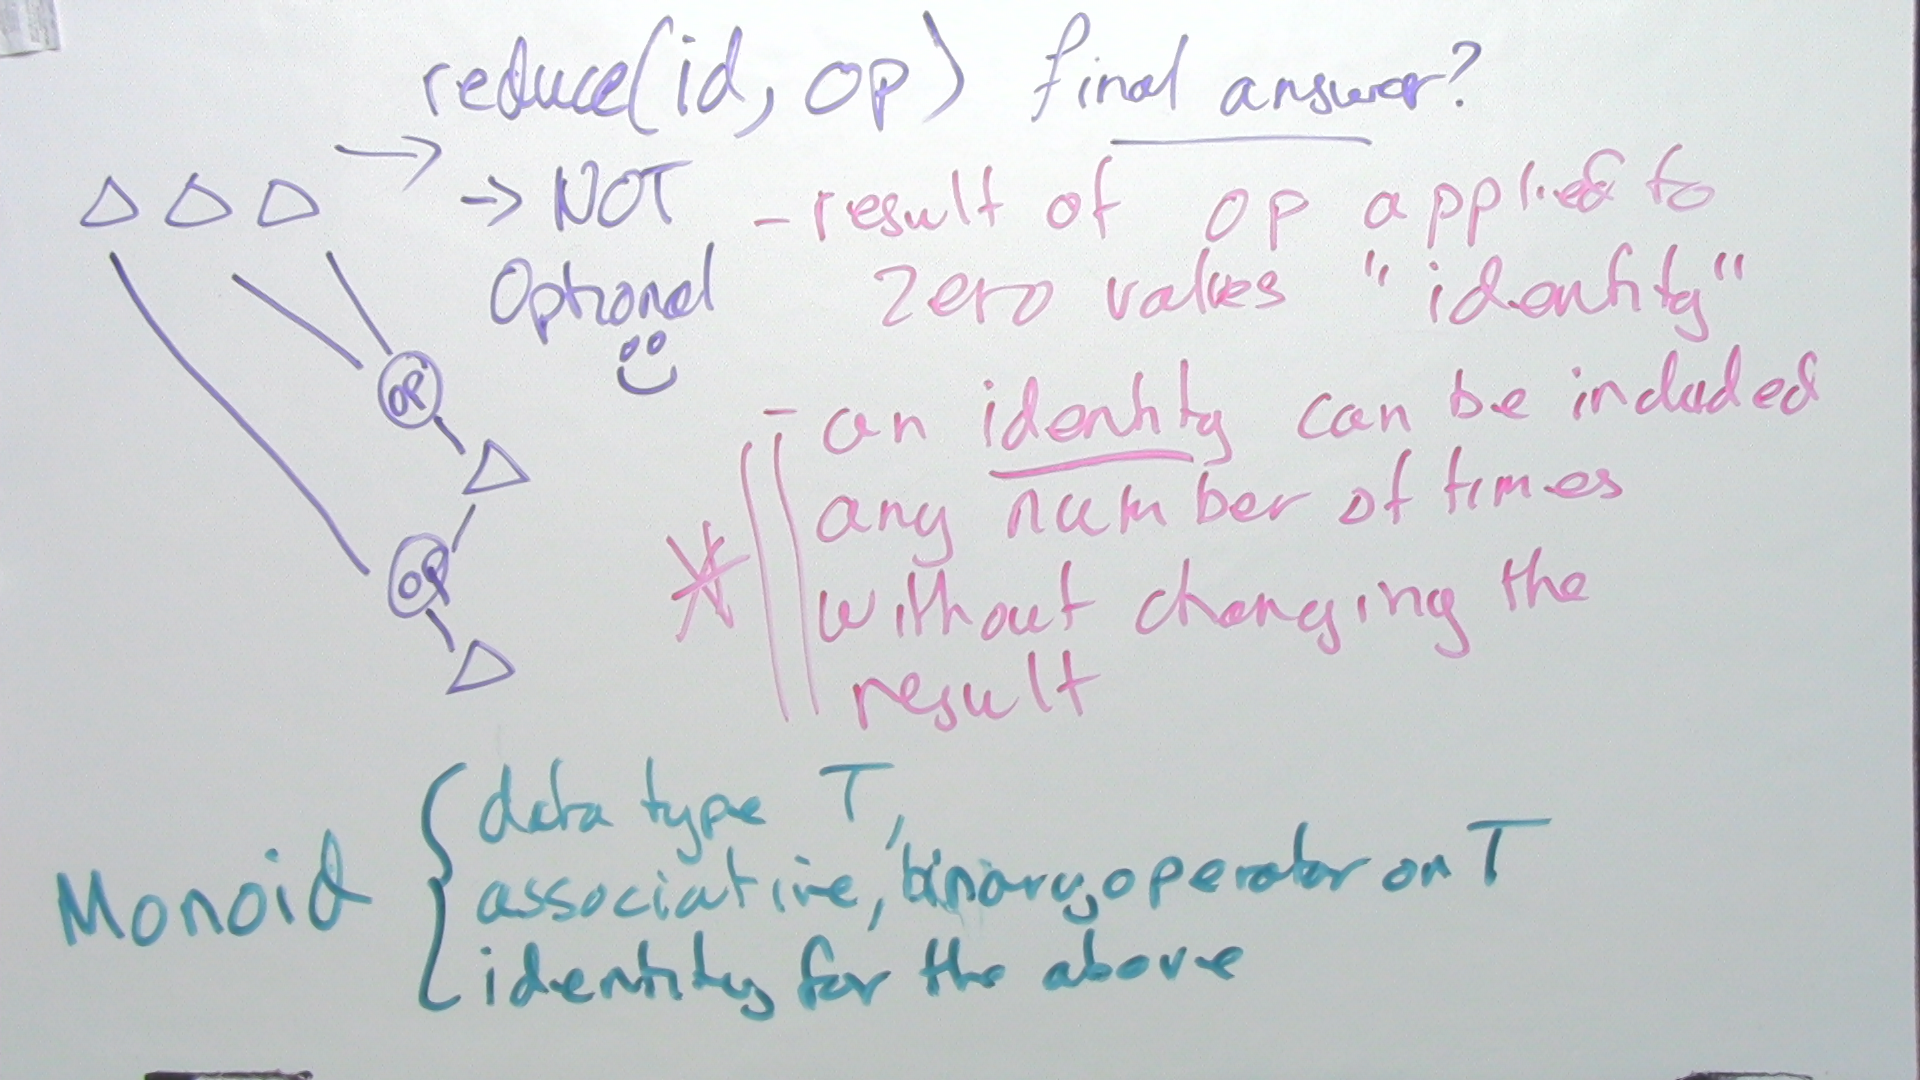 reduce(id, op) final answer?
→ NOT
Optional
- result of op applied to
zero values "identity"
- an identity can be included
any number of times
without changing the
result
OP
OP
Monoid
data type T,
associative, binary operator on T
identity for the above